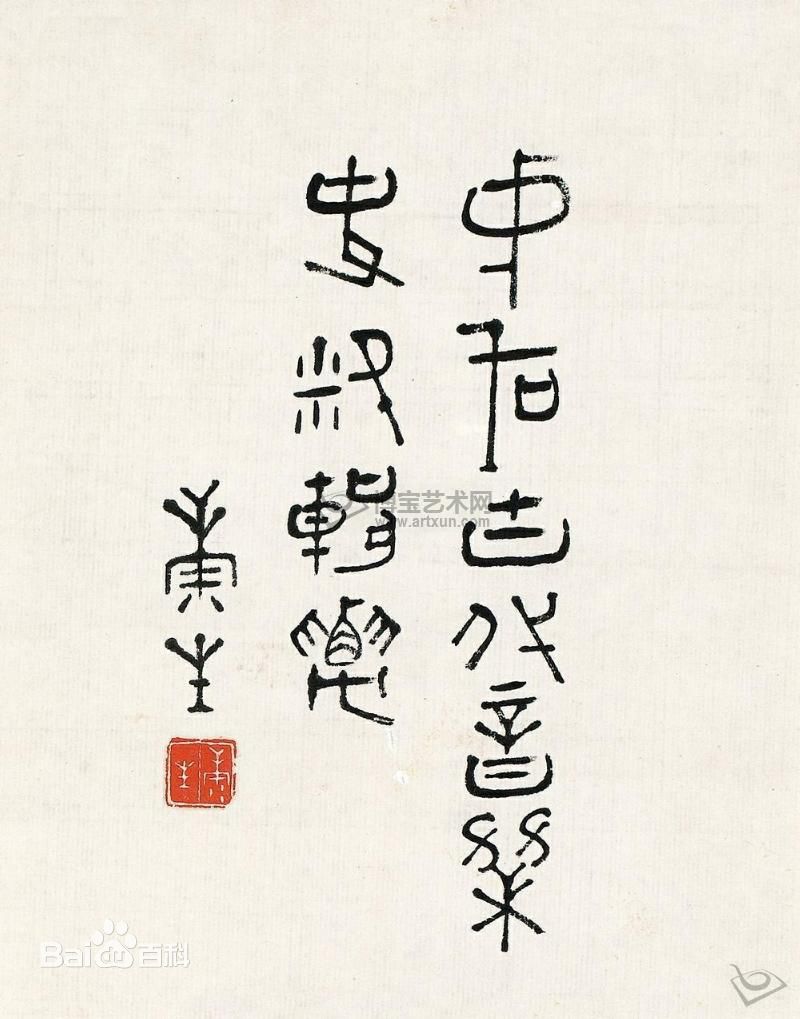 中國古代音樂
史料輯要
康生
康生
博宝艺术网
www.artxun.com
Baidu百科